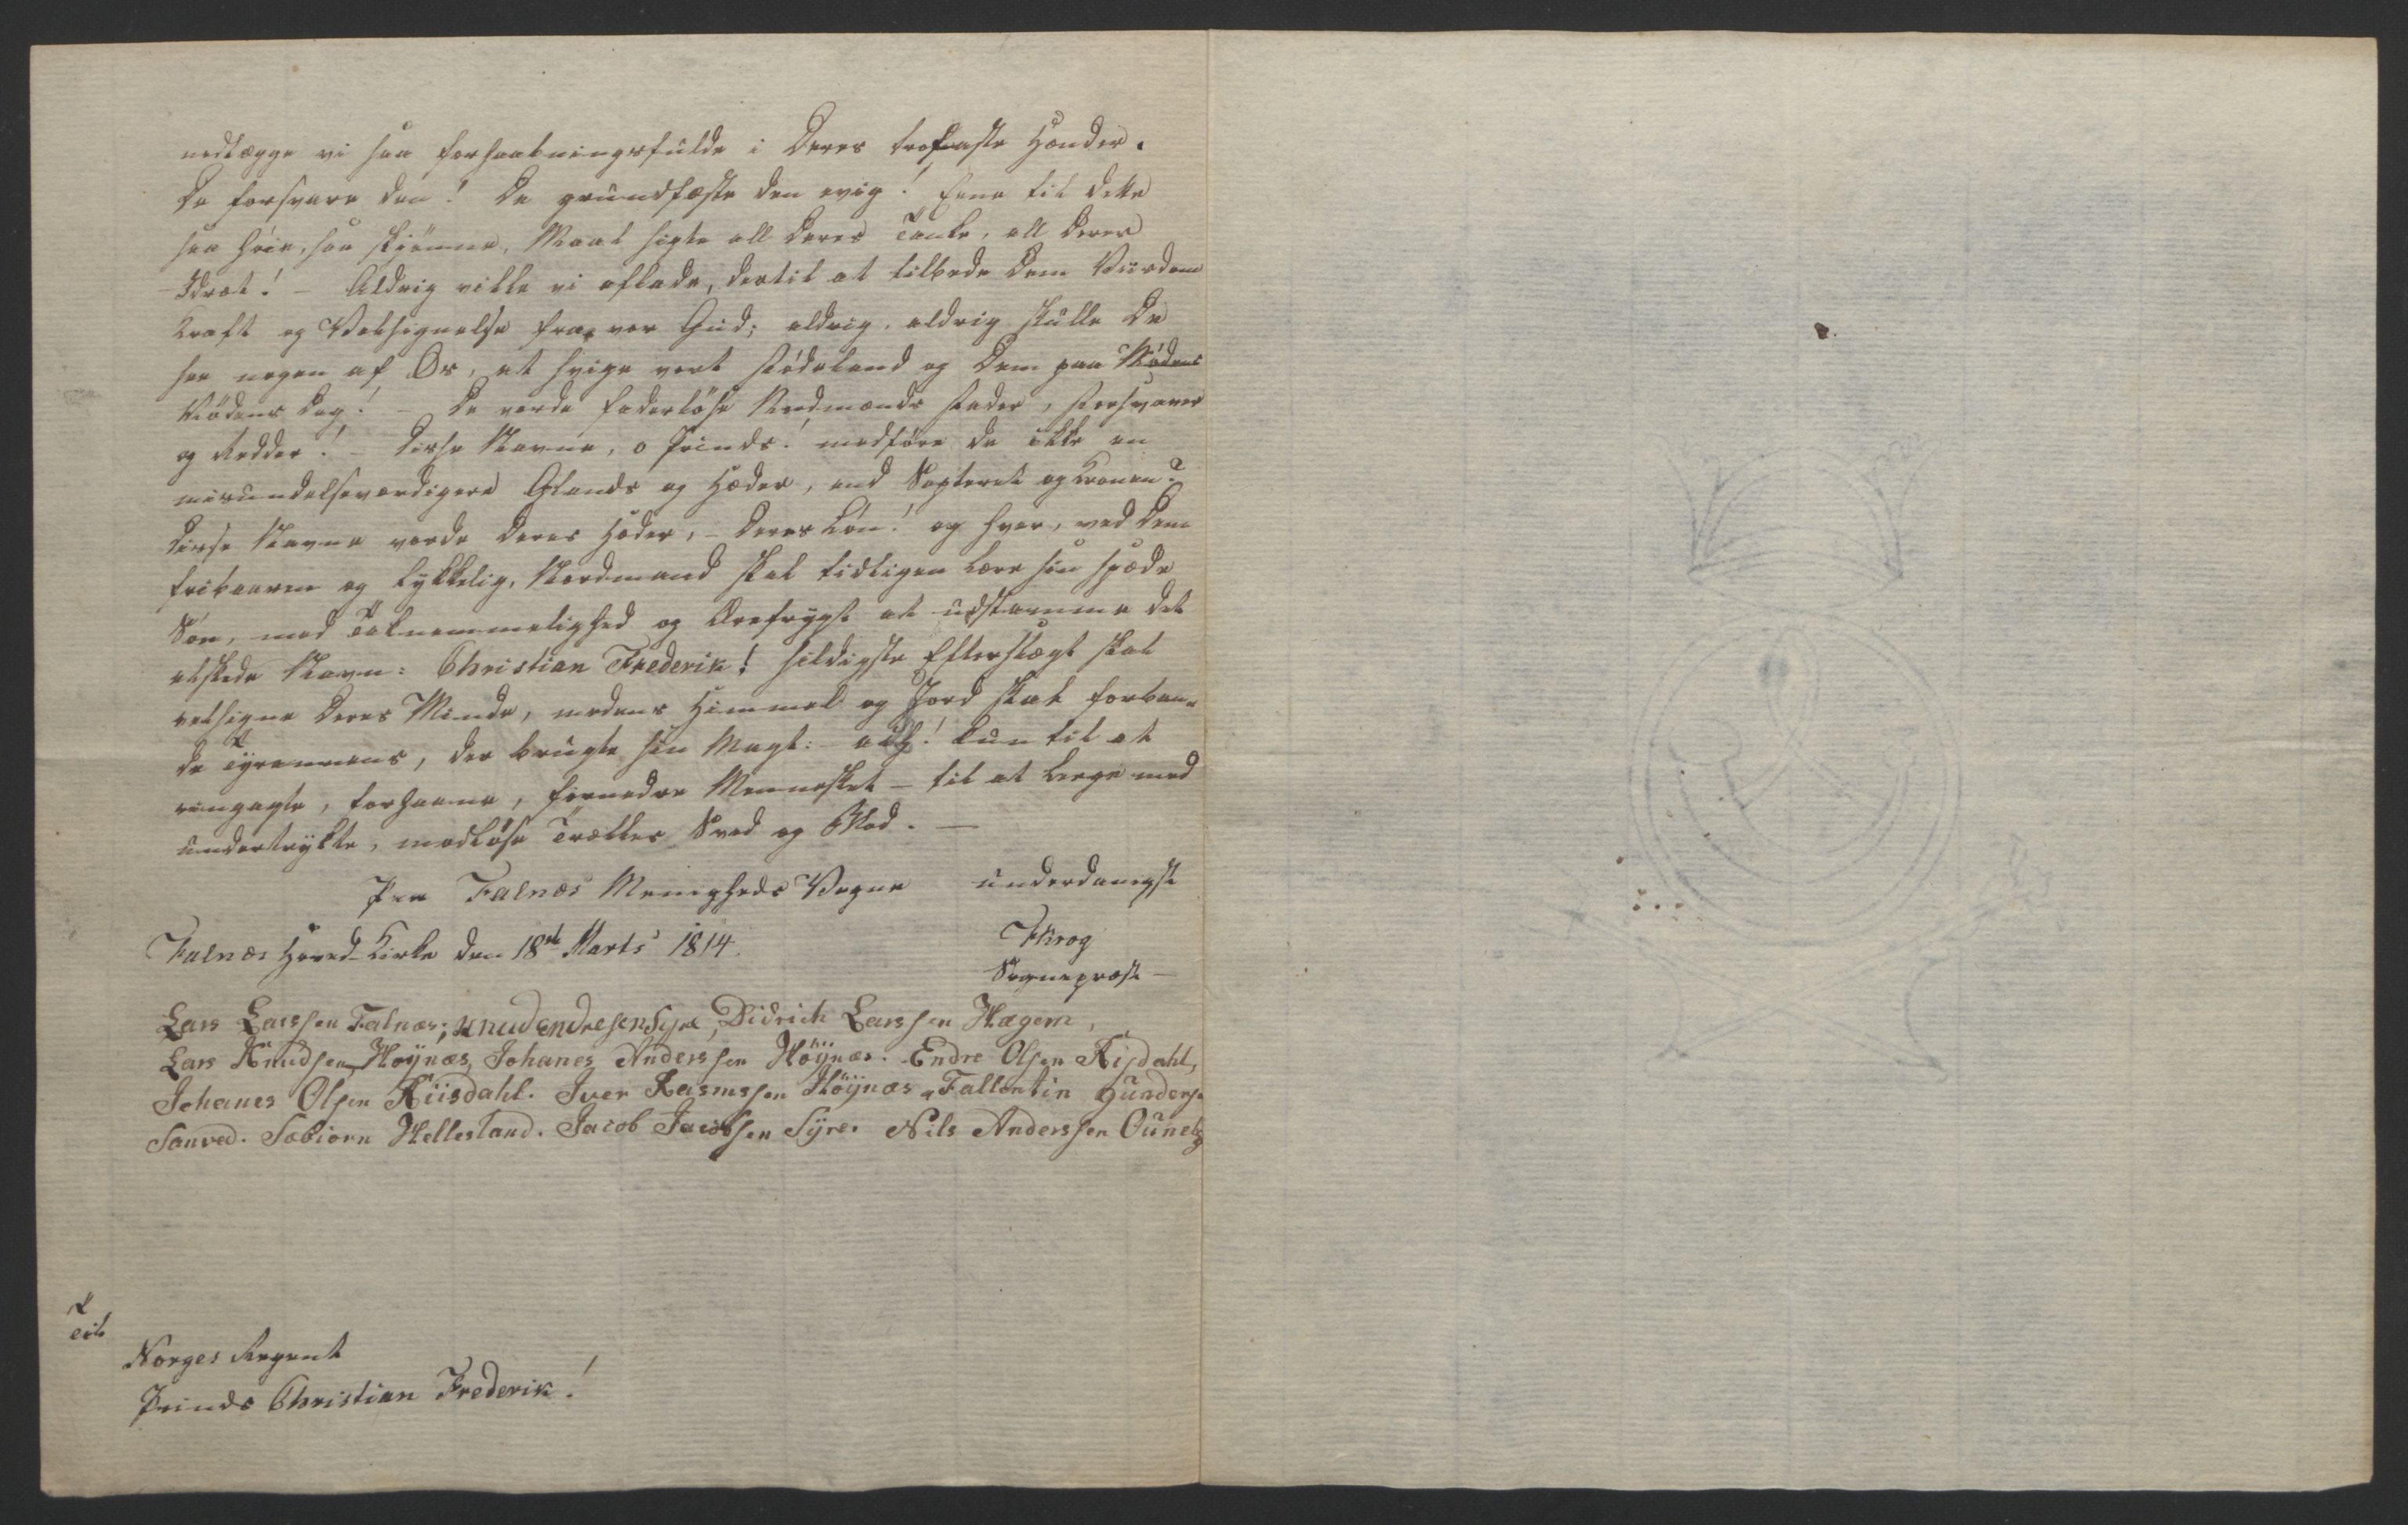 nedlægge vi saa forhaabningsfulde i Deres trofaste Hænder.
De forsvare den! De grundfæste den evig! Ene til dette
saa høie, saa skiønne, Maal sigte all Deres Tanke, all Deres
Idræt! – Aldrig ville vi aflade, dertil at tilbede Dem Viisdom
Kraft og Velsignelse fra vor Gud; aldrig, aldrig skulle De
see nogen af Os, at svige vort Fødeland og Dem paa Nødens
Nødens Dag! – De vorde faderløse Nordmænds Fader, Forsvarer
og Redder! – Disse Navne, o Prinds! medføre de ikke en
misundelseværdigere Glands og Hæder, end Septeret og Kronen?
Disse Navne vorde Deres Hæder, – Deres Løn! og hver, ved Dem
fribaaren og lykkelig, Nordmand skal tidligen lære sin spæde
Søn, med Taknemmelighed og Ærefrygt at udstamme det
elskede Navn: Christian Frederik! sildigste Efterslægt skal
velsigne Deres Minde, medens Himmel og Jord skal forban-
de Tyrannens, der brugte sin Magt: – ach! kun til at
ringagte, forhaane, fornedre Mennesket – til at lege med
undertrykte, modløse Trælles Sved og Blod. –
Paa Falnæs Menigheds Vegne underdanigst
Falnæs Hoved-Kirke den 18de Marts 1814.
Krog
Sognepræst –
Lars Larssen Falnæs; Knud Endresen Syre, Didrich Larssen Hægem,
Lars Knudsen Høynæs, Johanes Anderssen Høÿnæs. Endre Olsen Risdahl,
Johanes Olsen Riisdahl. Iver Rasmssen Høÿnæs, Fallentin Gunders
Sanved. Sæbiørn Hellesland. Jacob Jacobsen Syre. Nils Anderssen
Til
Norges Regent
Prinds Christian Frederik!